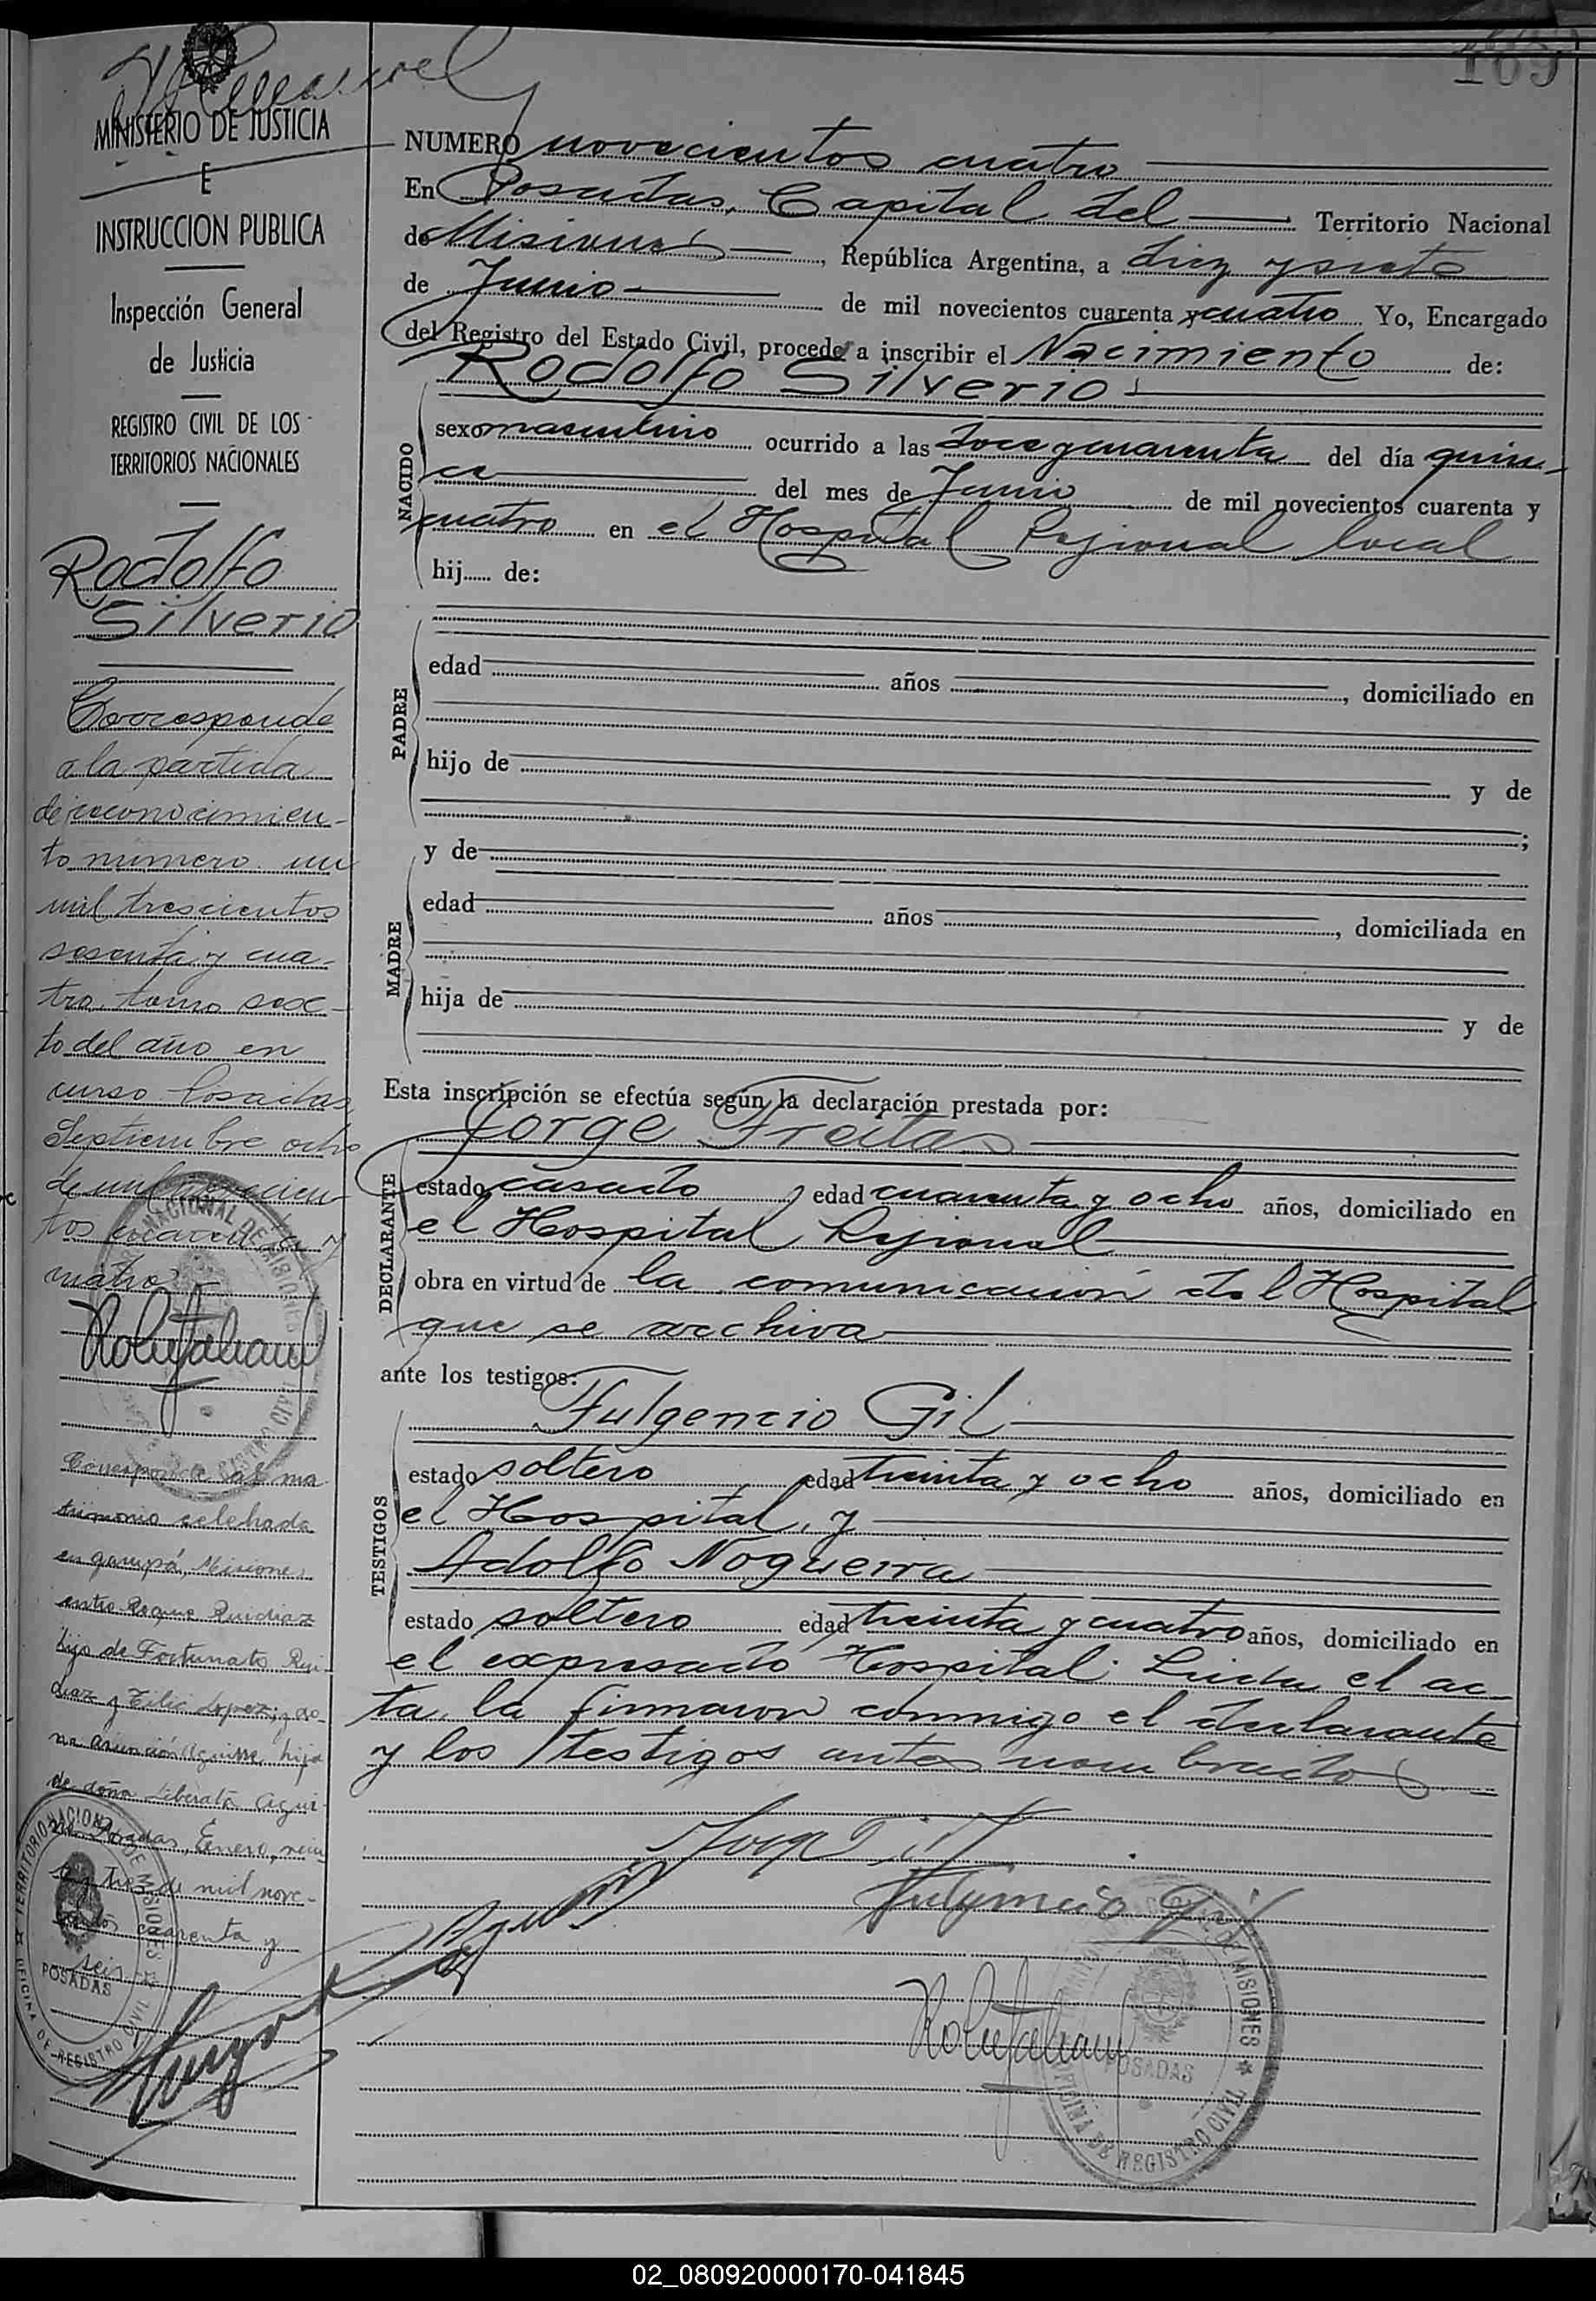 169
MINISTERIO DE JUSTICIA
E
INSTRUCCION PUBLICA
Inspección General
de Justicia
REGISTRO CIVIL DE LOS
TERRITORIOS NACIONALES
Rodolfo
Silverio
Corresponde
a la partida
de reconocimien-
to número un
mil trescientos
sesenta y cua-
tro, tomo sex-
to del año en
curso Posadas,
Septiembre ocho
de mil novecien-
tos cuarenta y
cuatro
Corresponde al ma
trimonio celebrado
en garupá, Misiones
entre Roque Ruidiaz
hijo de Fortunato Rui-
diaz y Lopez; y do-
ña asunción Aguirre, hija
de doña Liberata Agui-
rre Posadas, Enero, vein
te y tres de mil nove-
cientos cuarenta y
seis
TERRITORIO NACIONAL DE MISIONES
POSADAS
OFICINA DE REGISTRO CIVIL
NUMERO novecientos cuatro
En Posadas, Capital del Territorio Nacional
de Misiones, República Argentina, a diez y siete
de Junio de mil novecientos cuarenta y cuatro Yo, Encargado
del Registro del Estado Civil, procedo a inscribir el Nacimiento de:
Rodolfo Silverio
NACIDO
sexo masculino ocurrido a las doce y cuarenta del día quin-
ce del mes de Junio de mil novecientos cuarenta y
cuatro en el Hospital Rejional local
hij...... de:
PADRE
edad años , domiciliado en
hijo de y de
;
MADRE
y de
edad años , domiciliada en
hija de y de
Esta inscripción se efectúa según la declaración prestada por:
Jorge Freitas
DECLARANTE
estado casado edad cuarenta y ocho años, domiciliado en
el Hospital Rejional
obra en virtud de la comunicación del Hospital
que se archiva
ante los testigos:
TESTIGOS
Fulgencio Gil
estado soltero edad treinta y ocho años, domiciliado en
el Hospital, y
Adolfo Nogueira
estado soltero edad treinta y cuatro años, domiciliado en
el expresado Hospital. Leida el ac-
ta, la firmaron conmigo el declarante
y los testigos antes nombrados
Fulgencio Gil
MISIONES
POSADAS
OFICINA DE REGISTRO CIVIL
02_080920000170-041845